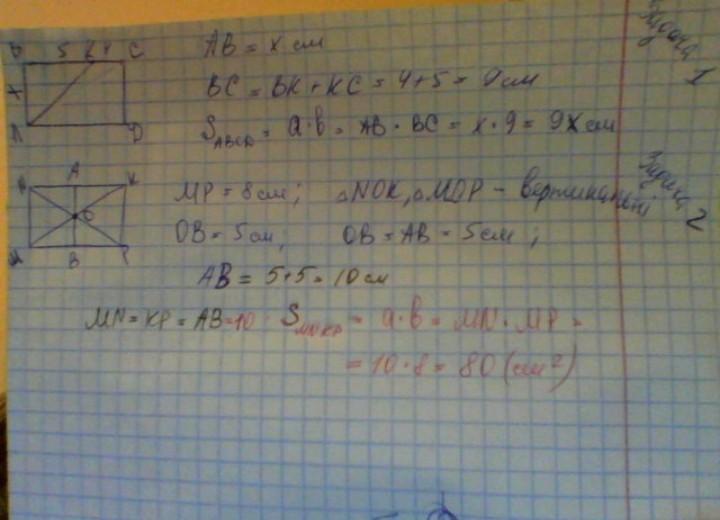 Задача 1
B 5 K 4 C
x
A D
AB = x см
BC = BK + KC = 4+5 = 9 см
S ABCD = a·b = AB · BC = x · 9 = 9x см
Задача 2
N A K
O
M B P
MP = 8 см; △NOK, △MOP – вертикальный
OB = 5 см; OB = AB = 5 см;
AB = 5+5 = 10 см
MN = KP = AB = 10 S MNKP = a·b = MN · MP =
= 10 · 8 = 80 (см²)